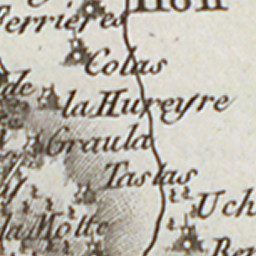 Ferrieres
Colas
de
la Hureyre
Graula
Taslas
Uch
la Motte